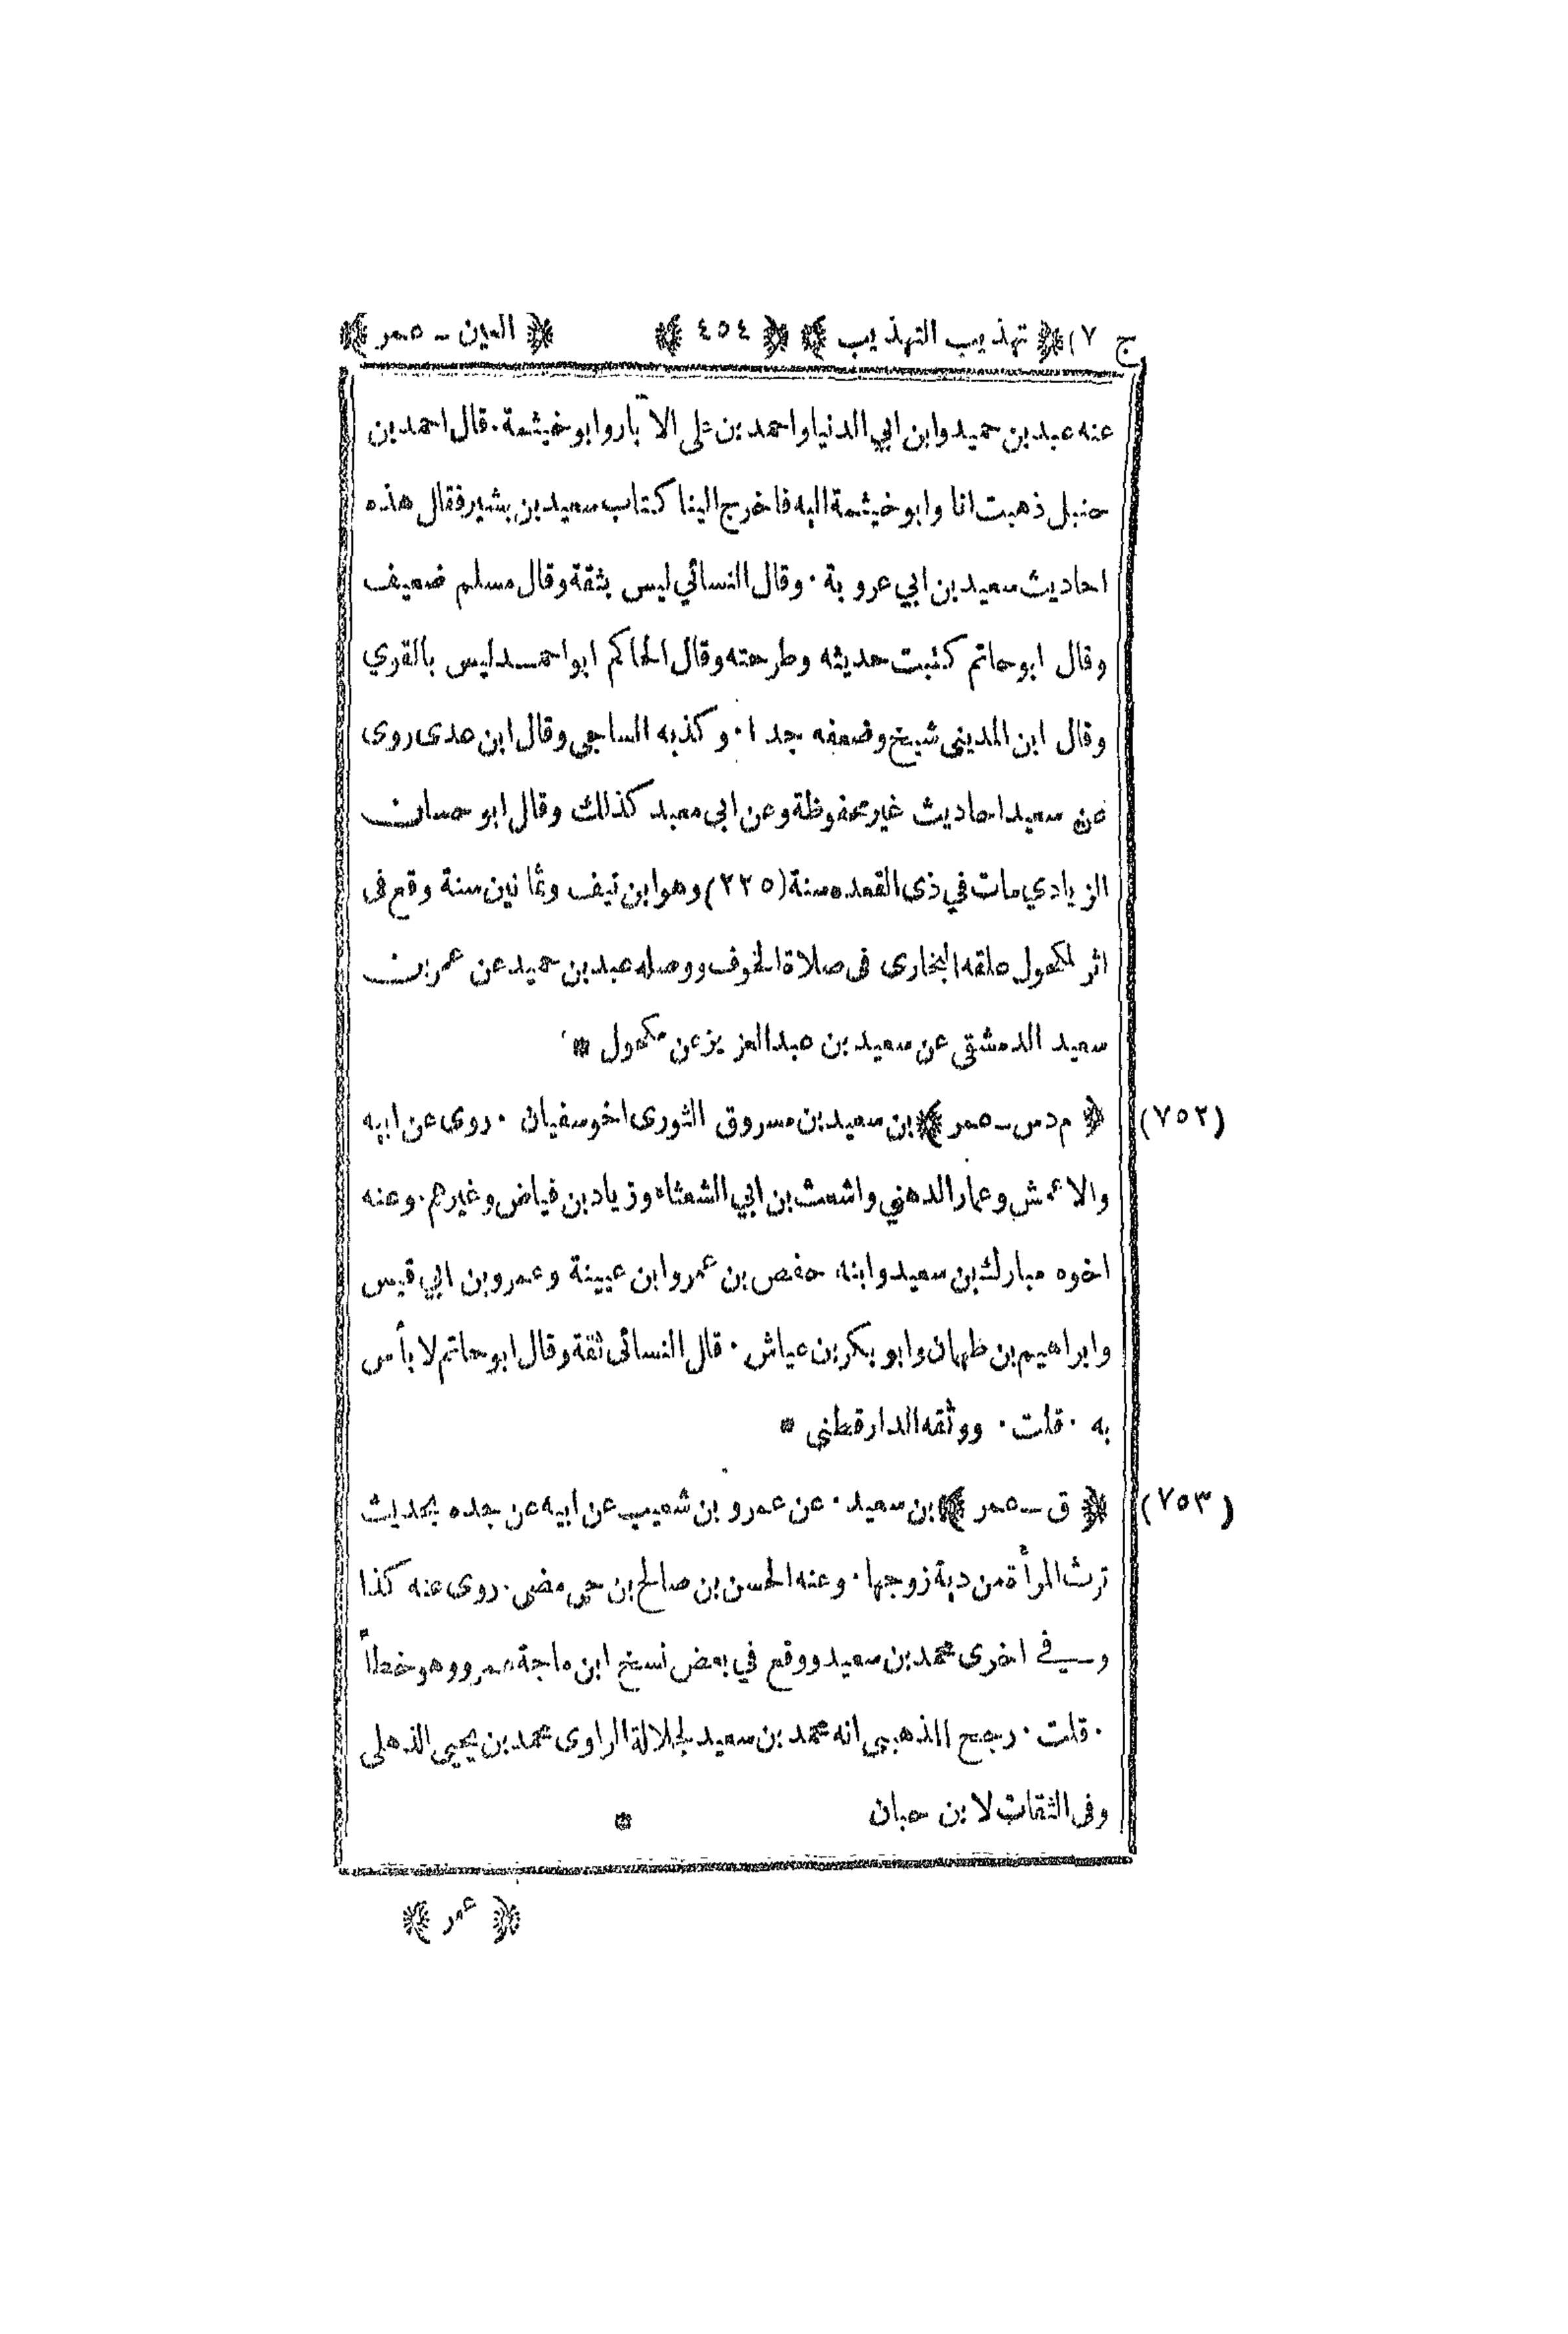 ج ٧) ﴿ تهذيب التهذيب ﴾ ﴿ ٤٥٤ ﴾ ﴿ العين - عمر ﴾
عنه عبد بن حميد وابن ابي الدنيا واحمد بن على الاّ بار وابو خيثمة . قال احمد بن
حنبل ذهبت انا وابو خيثمة اليه فاخرج الينا كتاب سعيد بن بشير فقال هذه
احاديث سعيد بن ابي عروبة . وقال النسائي ليس بثقة وقال مسلم ضعيف
وقال ابو حاتم كتبت حديثه وطرحته وقال الحاكم ابو احمد ليس بالقوي
وقال ابن المديني شيخ وضعفه جدا . وكذبه الساجي وقال ابن عدى روى
عن سعيد احاديث غير محفوظة وعن ابي معبد كذلك وقال ابو حسان
الزيادي مات في ذى القعده سنة (٢٢٥) وهو ابن نيف وثمانين سنة وقع فى
اثر لمكحول علقه البخارى فى صلاة الخوف ووصله عبد بن حميد عن عمر بن
سعيد الدمشقى عن سعيد بن عبد العزيز عن مكحول *
(٧٥٢) ﴿ م د س - عمر ﴾ بن سعيد بن مسروق الثورى اخو سفيان . روى عن ابيه
والاعمش وعمار الدهني واشعث بن ابي الشعثاء وزياد بن فياض وغيرهم . وعنه
اخوه مبارك بن سعيد وابنه حفص بن عمر وابن عيينة وعمرو بن ابي قيس
وابراهيم بن طهمان وابو بكر بن عياش . قال النسائى ثقة وقال ابو حاتم لا بأس
به . قلت . ووثقه الدارقطنى *
(٧٥٣) ﴿ ق - عمر ﴾ بن سعيد . عن عمرو بن شعيب عن ابيه عن جده بحديث
ترث المرأة من دية زوجها . وعنه الحسن بن صالح بن حي مضى . روى عنه كذا
وفي اخرى محمد بن سعيد ووقع في بعض نسخ ابن ماجة عمرو وهو خطأ
. قلت . رجح الذهبي انه محمد بن سعيد لجلالة الراوى محمد بن يحيى الذهلى
وفى الثقات لا بن حبان *
﴿ عمر ﴾